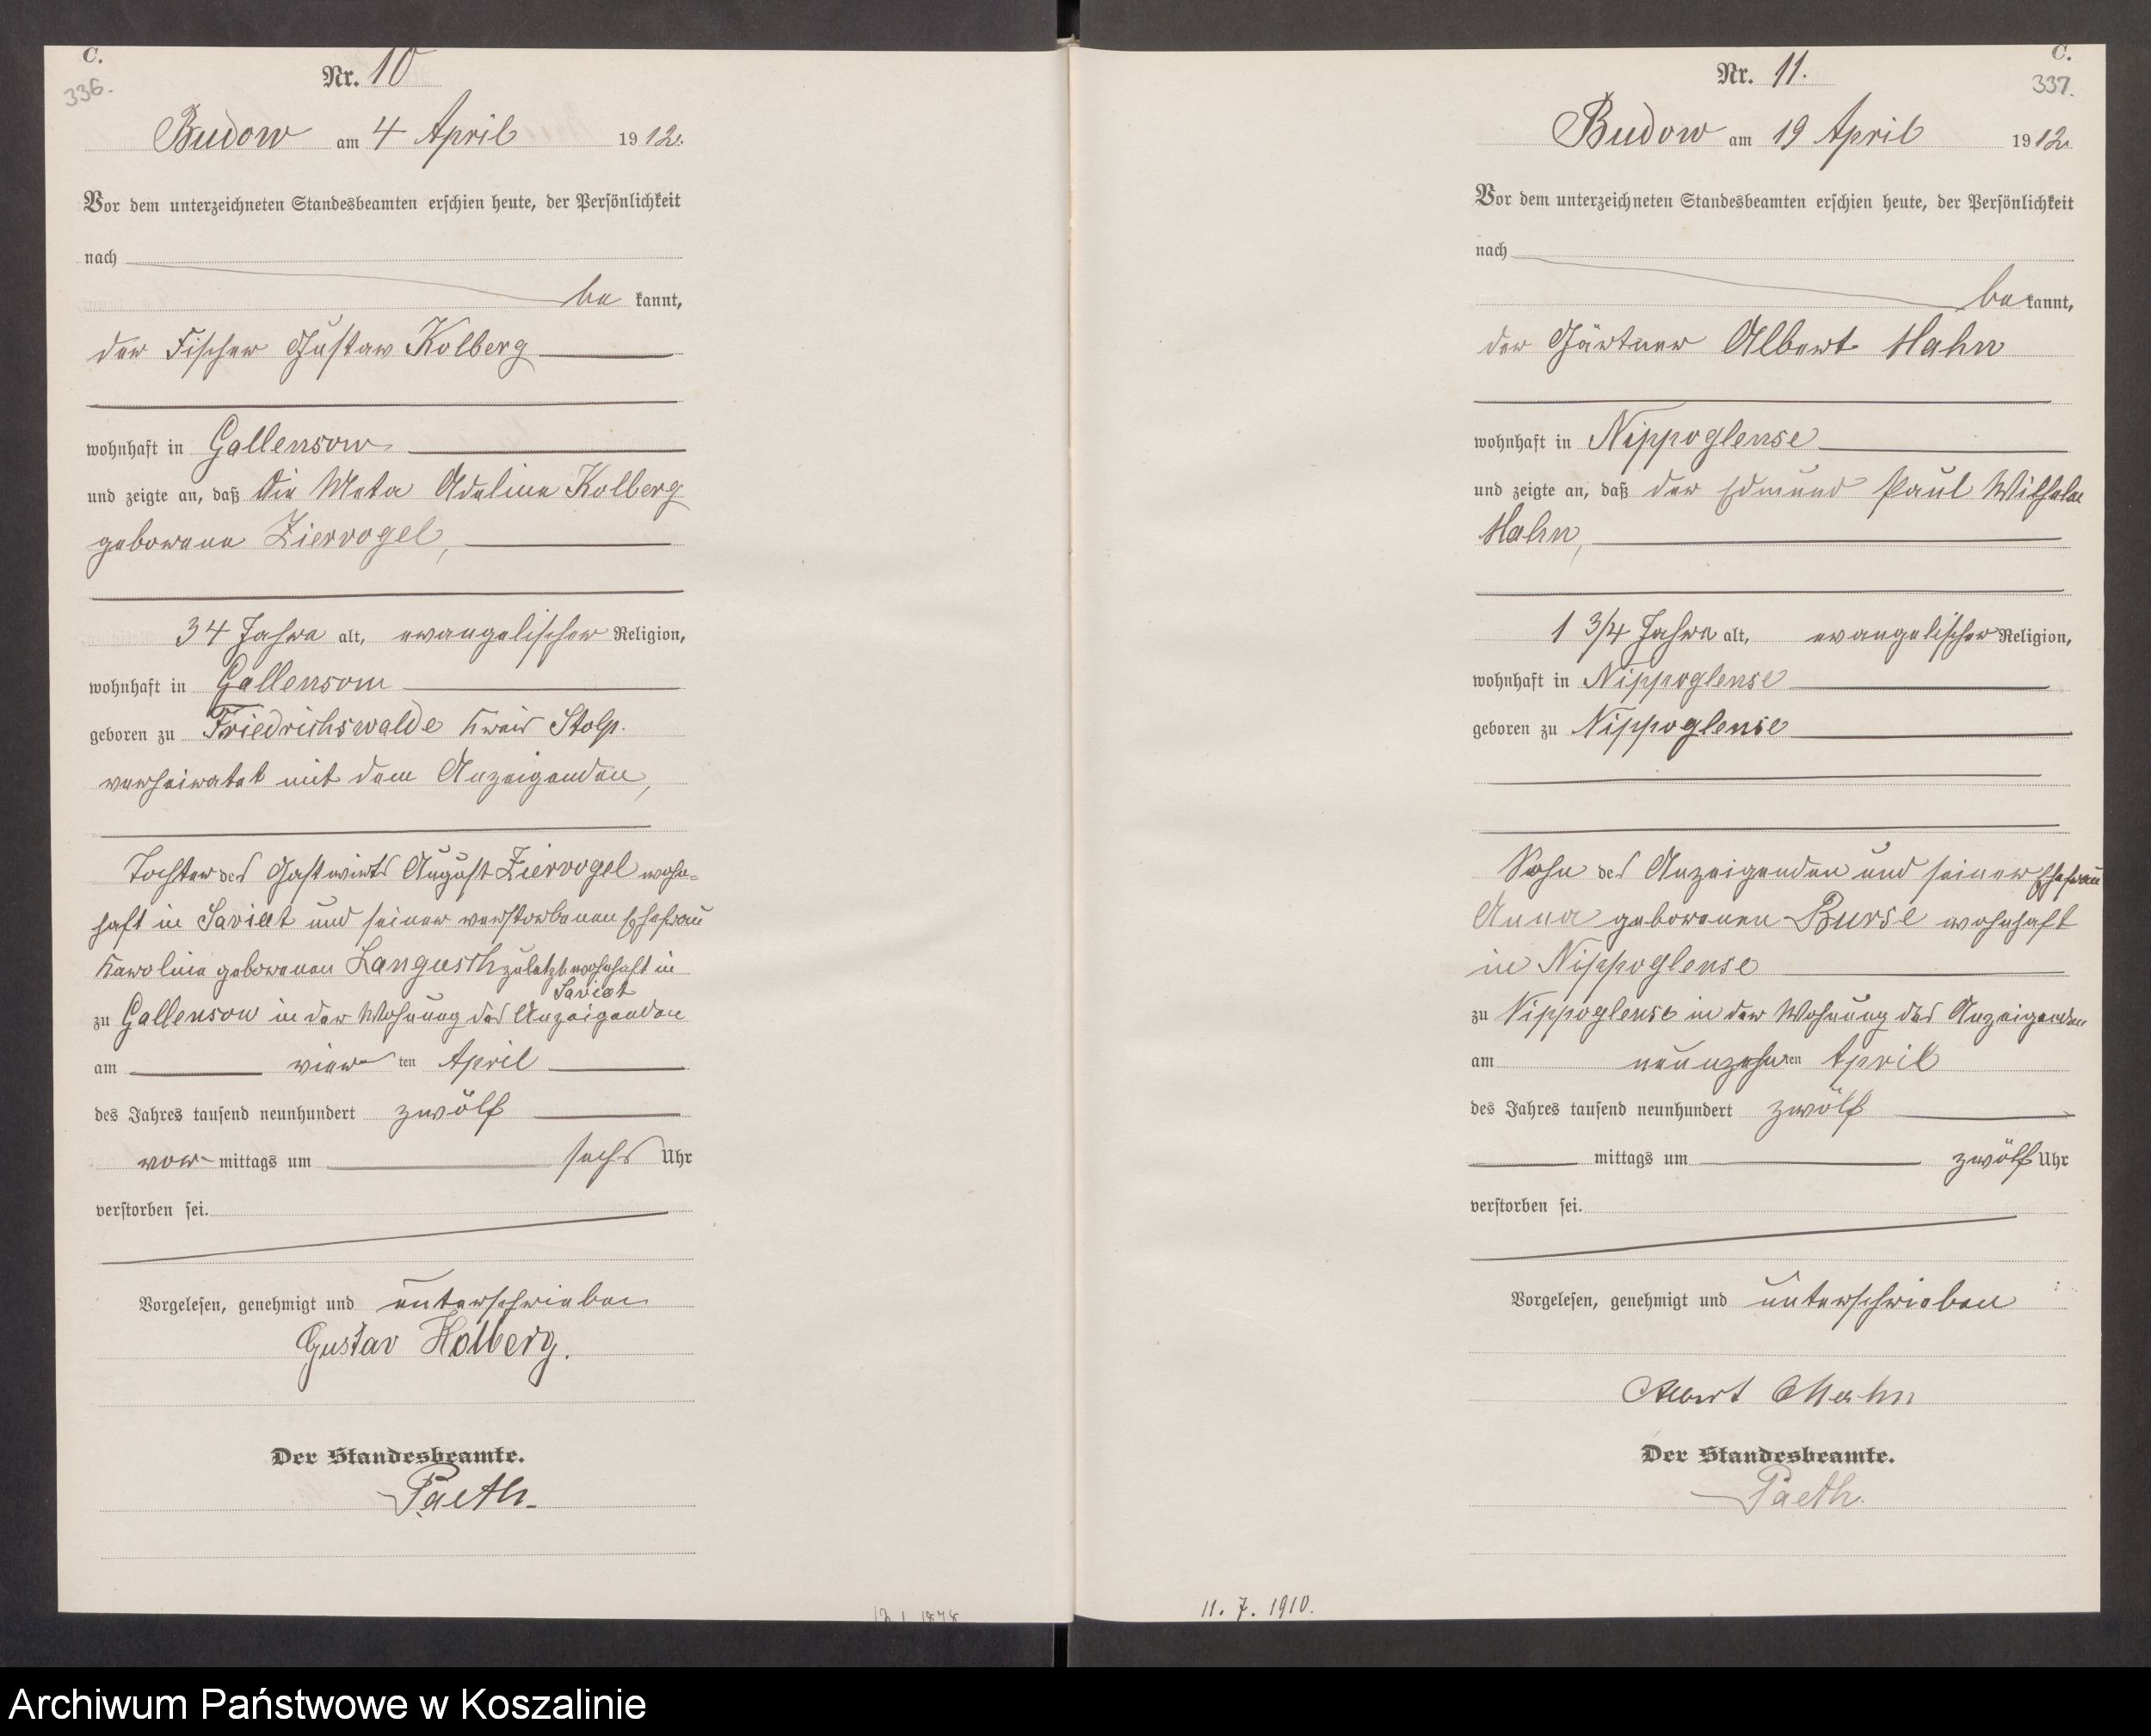 C.
336.
Nr. 10
Budow am 4 April 1912.
Vor dem unterzeichneten Standesbeamten erschien heute, der Persönlichkeit
nach
be kannt,
der Fischer Gustav Kolberg
wohnhaft in Gallensow
und zeigte an, daß die Meta Adeline Kolberg
geborene Ziervogel,
34 Jahre alt, evangelischer Religion,
wohnhaft in Gallensow
geboren zu Friedrichswalde Kreis Stolp.
verheiratet mit dem Anzeigenden,
Tochter des Gastwirts August Ziervogel wohn-
haft in Saviat und seiner verstorbenen Ehefrau
Karoline geborenen Langusch zuletzt wohnhaft in
Saviat
zu Gallensow in der Wohnung des Anzeigenden
am vier ten April
des Jahres tausend neunhundert zwölf
vor mittags um sechs Uhr
verstorben sei.
Vorgelesen, genehmigt und unterschrieben
Gustav Kolberg.
Der Standesbeamte.
Paeth.
C.
337.
Nr. 11.
Budow am 19 April 1912.
Vor dem unterzeichneten Standesbeamten erschien heute, der Persönlichkeit
nach
be kannt,
der Gärtner Albert Hahn
wohnhaft in Nippoglense
und zeigte an, daß der Edmund Paul Wilhelm
Hahn,
1 3/4 Jahre alt, evangelischer Religion,
wohnhaft in Nippoglense
geboren zu Nippoglense
Sohn des Anzeigenden und seiner Ehefrau
Anna geborenen Burse wohnhaft
in Nippoglense
zu Nippoglense in der Wohnung des Anzeigenden
am neunzehn ten April
des Jahres tausend neunhundert zwölf
mittags um zwölf Uhr
verstorben sei.
Vorgelesen, genehmigt und unterschrieben
Albert Hahn
Der Standesbeamte.
Paeth.
11. 7. 1910.
Archiwum Państwowe w Koszalinie